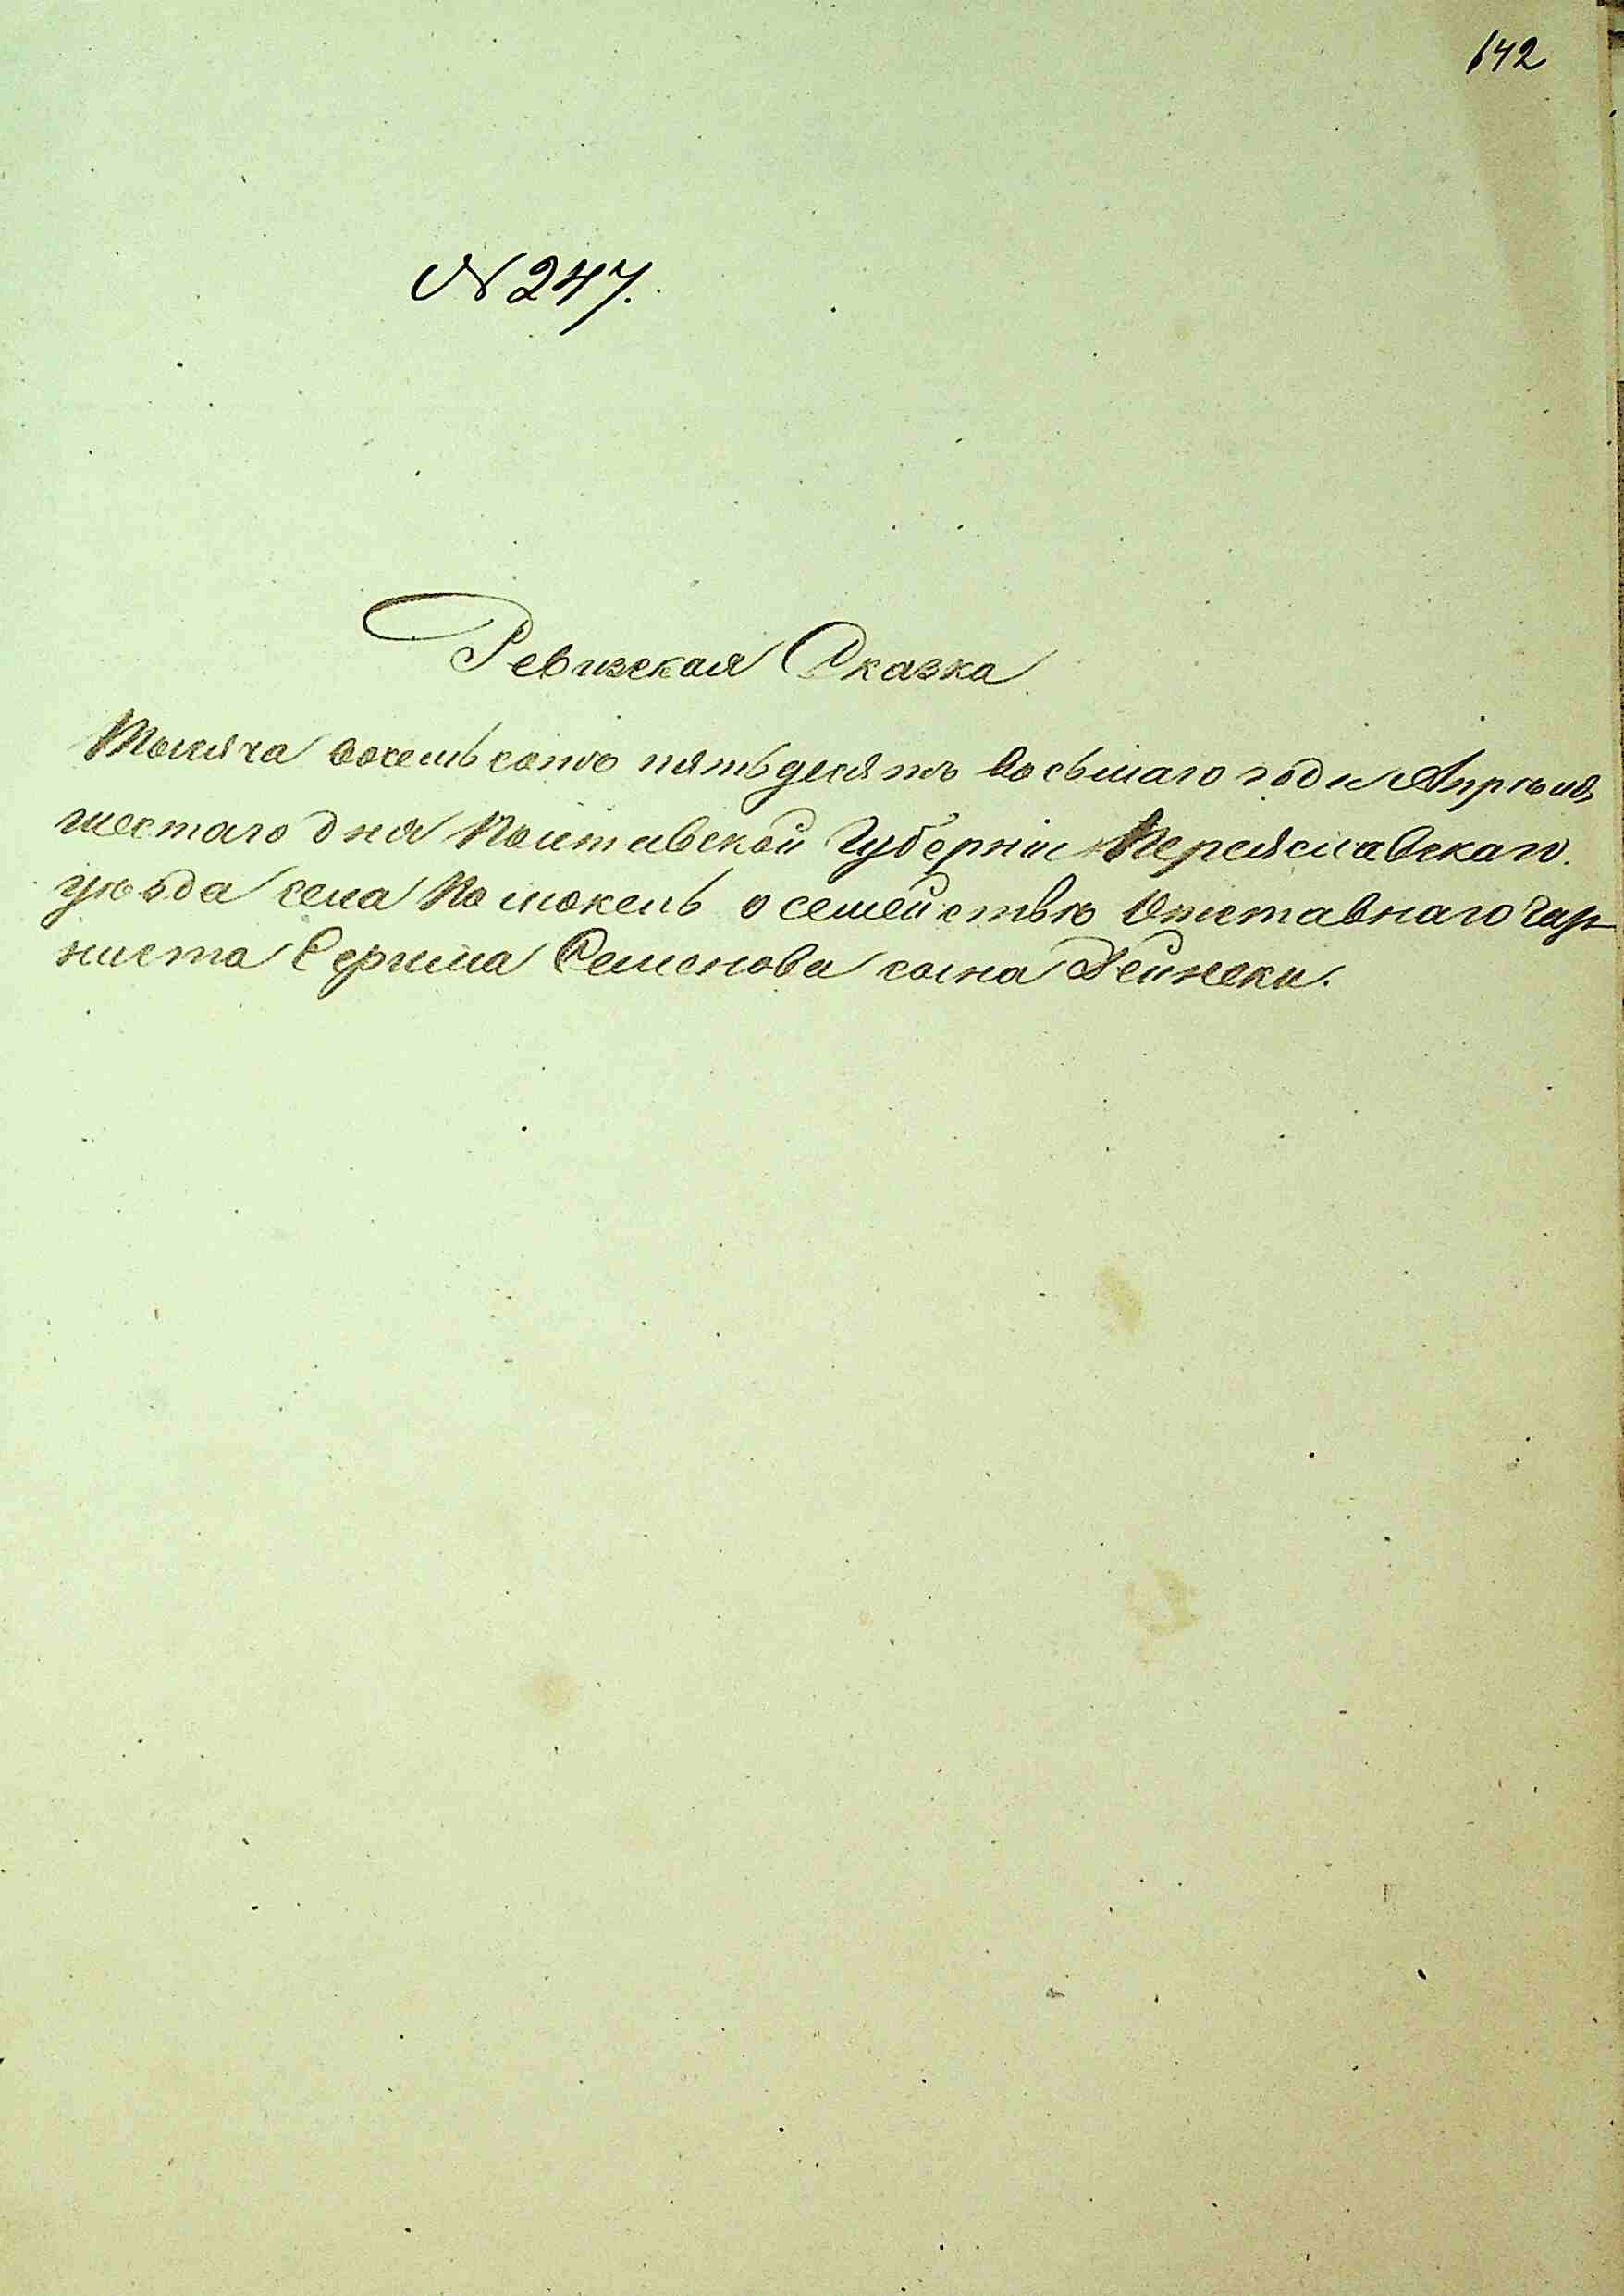 642
№ 247.
Ревизская Сказка
Тысяча восемьсотъ пятьдесятъ восьмаго года Апрѣля
шестаго дня Полтавской Губерніи Переяславскаго
уѣзда села Помокель о семействѣ Отставнаго Гар-
ниста Ефима Семенова сына Дейнеки.